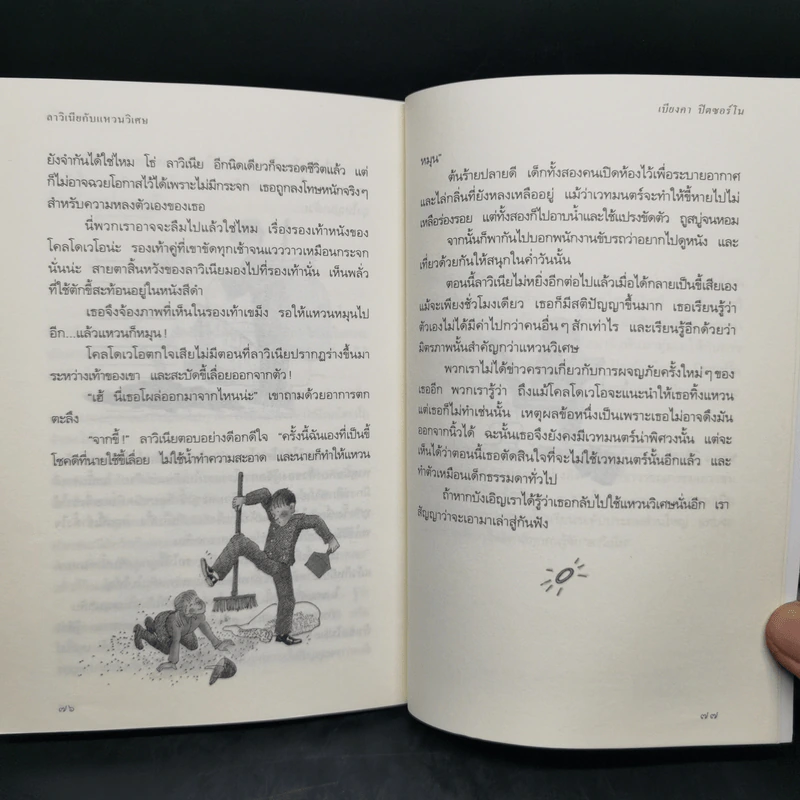 ลาวิเนียกับแหวนวิเศษ
ยังจำกันได้ใช่ไหม โธ่ ลาวิเนีย อีกนิดเดียวก็จะรอดชีวิตแล้ว แต่
ก็ไม่อาจฉวยโอกาสไว้ได้เพราะไม่มีกระจก เธอถูกลงโทษหนักจริงๆ
สำหรับความหลงตัวเองของเธอ
นี่พวกเราอาจจะลืมไปแล้วใช่ไหม เรื่องรองเท้าหนังของ
โคลโดเวโอน่ะ รองเท้าคู่ที่เขาขัดทุกเช้าจนแวววาวเหมือนกระจก
นั่นน่ะ สายตาสิ้นหวังของลาวิเนียมองไปที่รองเท้านั้น เห็นพลั่ว
ที่ใช้ตักขี้สะท้อนอยู่ในหนังสีดำ
เธอจึงจ้องภาพที่เห็นในรองเท้าเขม็ง รอให้แหวนหมุนไป
อีก...แล้วแหวนก็หมุน!
โคลโดเวโอตกใจเสียไม่มีตอนที่ลาวิเนียปรากฏร่างขึ้นมา
ระหว่างเท้าของเขา และสะบัดขี้เลื่อยออกจากตัว!
"เฮ้ นี่เธอโผล่ออกมาจากไหนน่ะ" เขาถามด้วยอาการตก
ตะลึง
"จากขี้!" ลาวิเนียตอบอย่างดีอกดีใจ "ครั้งนี้ฉันเองที่เป็นขี้
โชคดีที่นายใช้ขี้เลื่อย ไม่ใช้น้ำทำความสะอาด และนายก็ทำให้แหวน
๗๖
เบียงคา ปิตซอร์โน
หมุน"
ต้นร้ายปลายดี เด็กทั้งสองคนเปิดห้องไว้เพื่อระบายอากาศ
และไล่กลิ่นที่ยังหลงเหลืออยู่ แม้ว่าเวทมนตร์จะทำให้ขี้หายไปไม่
เหลือร่องรอย แต่ทั้งสองก็ไปอาบน้ำและใช้แปรงขัดตัว ถูสบู่จนหอม
จากนั้นก็พากันไปบอกพนักงานขับรถว่าอยากไปดูหนัง และ
เที่ยวด้วยกันให้สนุกในค่ำวันนั้น
ตอนนี้ลาวิเนียไม่หยิ่งอีกต่อไปแล้วเมื่อได้กลายเป็นขี้เสียเอง
แม้จะเพียงชั่วโมงเดียว เธอก็มีสติปัญญาขึ้นมาก เธอเรียนรู้ว่า
ตัวเองไม่ได้มีค่าไปกว่าคนอื่นๆ สักเท่าไร และเรียนรู้อีกด้วยว่า
มิตรภาพนั้นสำคัญกว่าแหวนวิเศษ
พวกเราไม่ได้ข่าวคราวเกี่ยวกับการผจญภัยครั้งใหม่ๆ ของ
เธออีก พวกเรารู้ว่า ถึงแม้โคลโดเวโอจะแนะนำให้เธอทิ้งแหวน
แต่เธอก็ไม่ทำเช่นนั้น เหตุผลข้อหนึ่งเป็นเพราะเธอไม่อาจดึงมัน
ออกจากนิ้วได้ ฉะนั้นเธอจึงยังคงมีเวทมนตร์น่าพิศวงนั้น แต่จะ
เห็นได้ว่าตอนนี้เธอตัดสินใจที่จะไม่ใช้เวทมนตร์นั้นอีกแล้ว และ
ทำตัวเหมือนเด็กธรรมดาทั่วไป
ถ้าหากบังเอิญเราได้รู้ว่าเธอกลับไปใช้แหวนวิเศษนั่นอีก เรา
สัญญาว่าจะเอามาเล่าสู่กันฟัง
๗๗